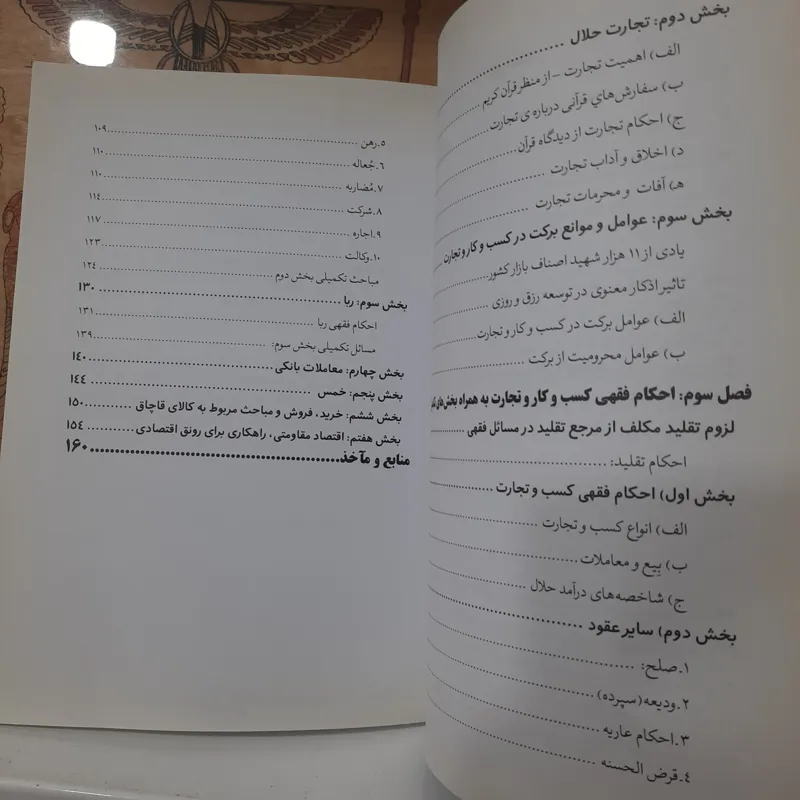 بخش دوم: تجارت حلال
الف) اهمیت تجارت – از منظر قرآن کریم
ب) سفارش‌هاي قرآنی درباره ی تجارت
ج) احکام تجارت از دیدگاه قرآن
د) اخلاق و آداب تجارت
هـ) آفات و محرمات تجارت
بخش سوم: عوامل و موانع برکت در کسب و کار و تجارت
یادی از ۱۱ هزار شهید اصناف بازار کشور
تاثیر اذکار معنوی در توسعه رزق و روزی
الف) عوامل برکت در کسب و کار و تجارت
ب) عوامل محرومیت از برکت
فصل سوم: احکام فقهی کسب و کار و تجارت به همراه بخش‌های
لزوم تقلید مکلف از مرجع تقلید در مسائل فقهی
احکام تقلید:
بخش اول) احکام فقهی کسب و تجارت
الف) انواع کسب و تجارت
ب) بِیع و معاملات
ج) شاخصه‌های درآمد حلال
بخش دوم) سایر عقود
۱.صلح:
۲.ودیعه(سپرده)
۳.احکام عاریه
۴.قرض الحسنه
۵.رهن ۱۰۹
۶.جُعاله ۱۱۰
۷.مُضاربه ۱۱۰
۸.شرکت ۱۱۴
۹.اجاره ۱۱۷
۱۰.وکالت ۱۲۳
مباحث تکمیلی بخش دوم ۱۲۴
بخش سوم: ربا ۱۳۰
احکام فقهی ربا ۱۳۱
مسائل تکمیلی بخش سوم: ۱۳۹
بخش چهارم: معاملات بانکی ۱۴۰
بخش پنجم: خمس ۱۴۴
بخش ششم: خرید، فروش و مباحث مربوط به کالای قاچاق ۱۵۰
بخش هفتم: اقتصاد مقاومتی، راهکاری برای رونق اقتصادی ۱۵۴
منابع و مآخذ ۱۶۰